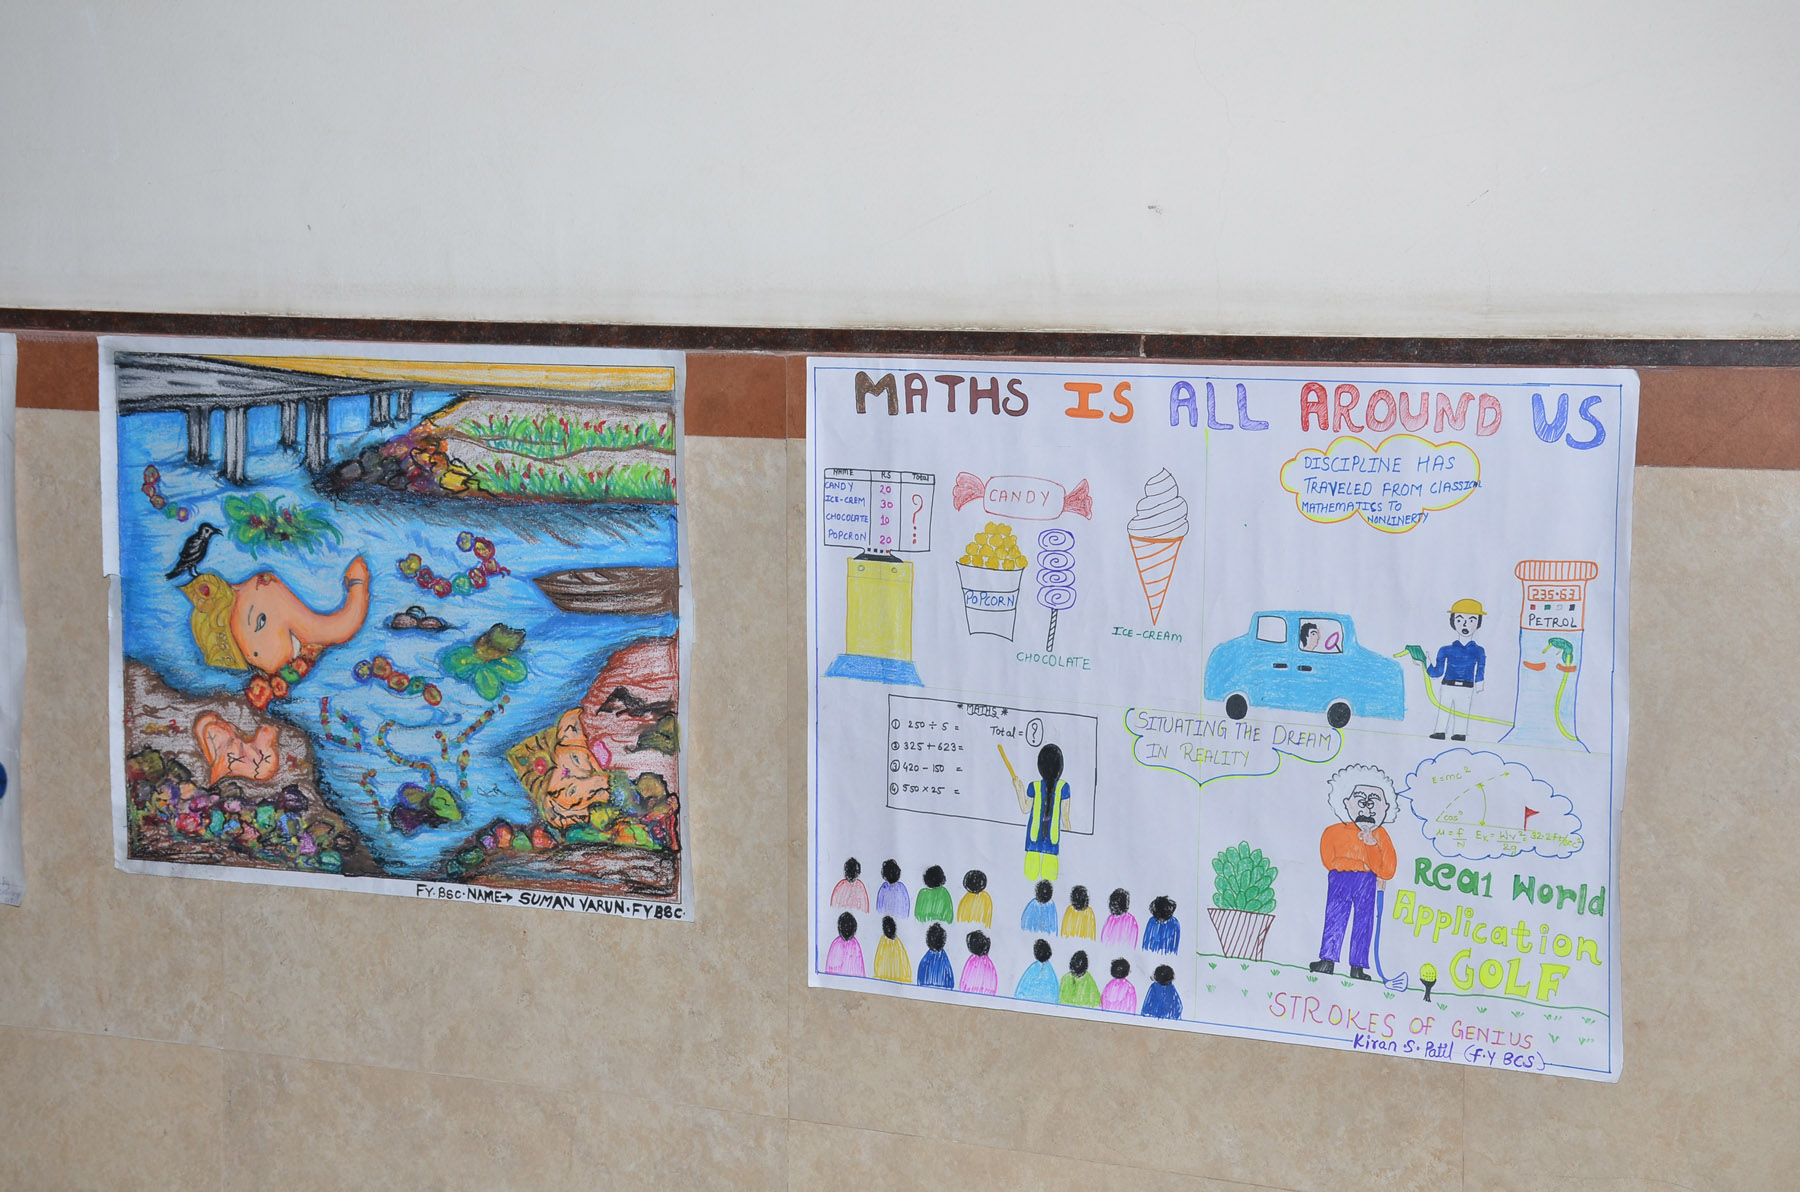 FY.BSC.NAME→ SUMAN VARUN.FYBSC.
MATHS IS ALL AROUND US
NAME RS Total
CANDY 20
ICE-CREM 30
CHOCOLATE 10
POPCRON 20
?
CANDY
POPCORN
CHOCOLATE
ICE-CREAM
DISCIPLINE HAS
TRAVELED FROM ClASSICAL
MATHEMATICS TO
NONLINERTY
235.63
PETROL
* MATHS *
① 250 ÷ 5 =
② 325 + 623 =
③ 420 - 150 =
④ 550 × 25 =
Total = ?
SITUATING THE DREAM
IN REALITY
E=mc²
cos°
μ = f/N Ek = Wv²/2g
Real World
Application
GOLF
STROKES OF GENIUS
Kiran.S.Patil (F.Y BCS)